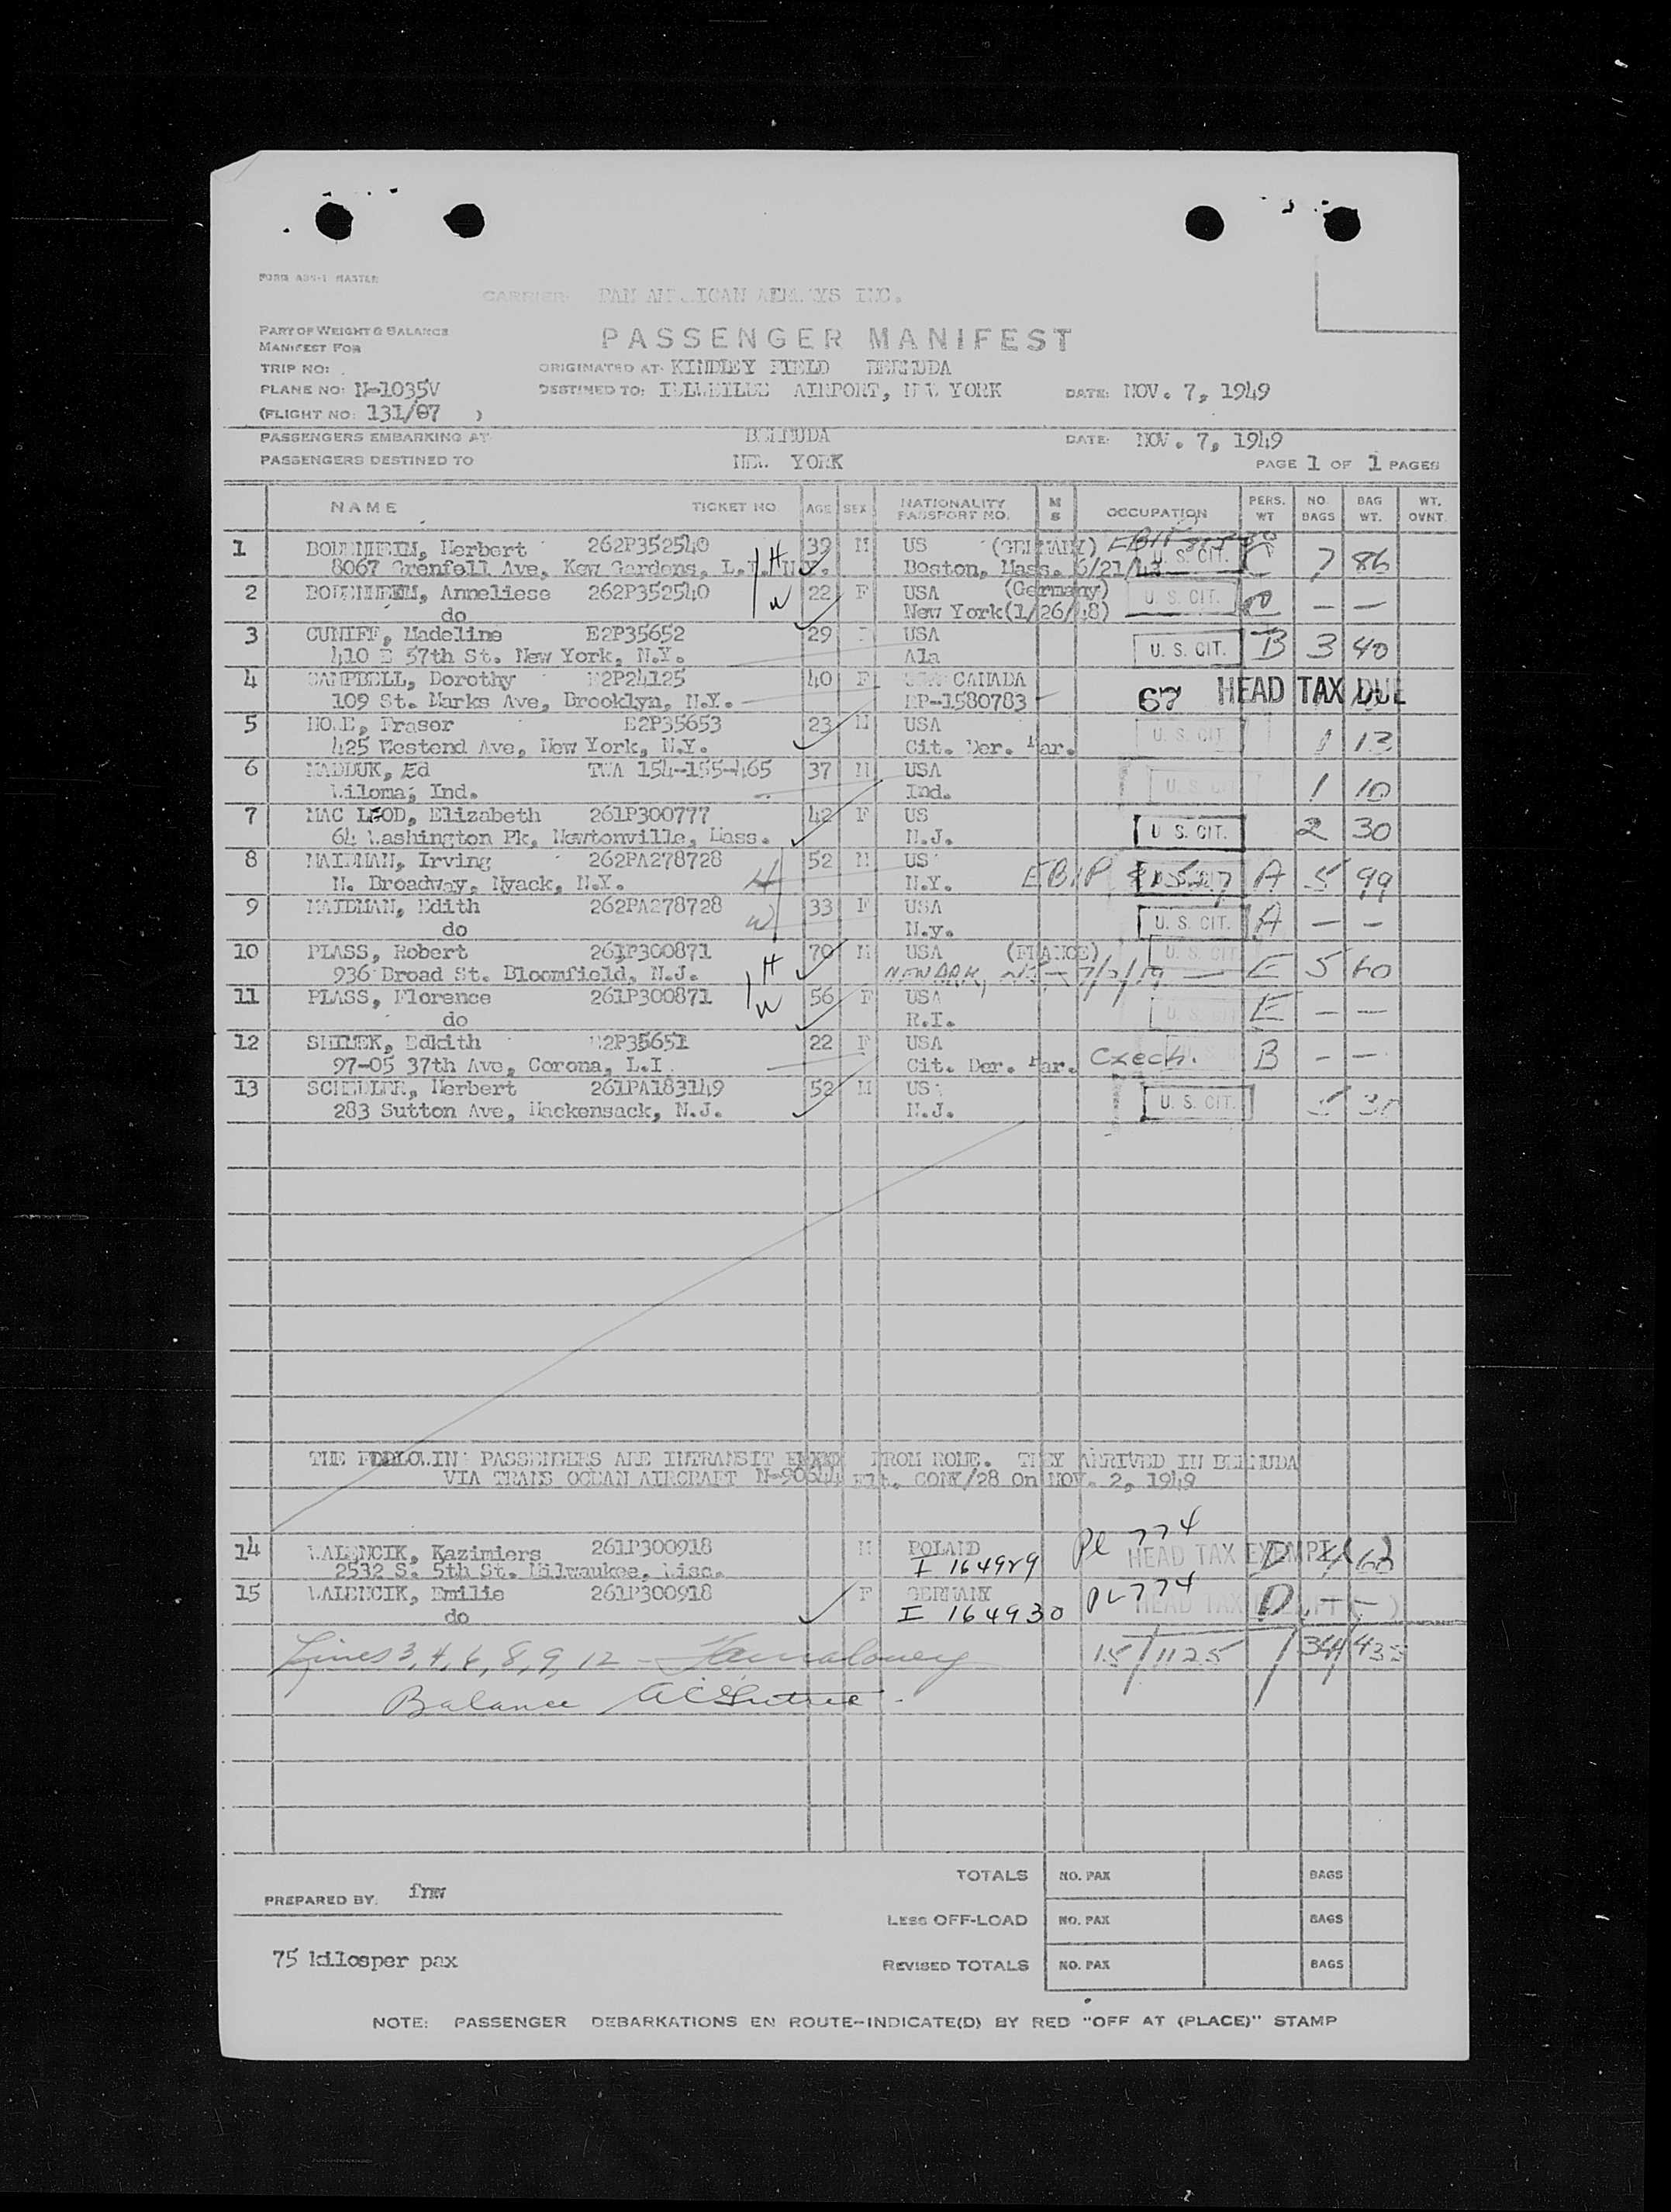 FORM ADV-1 MASTER
CARRIER: PAN AMERICAN INC.
PART OF WEIGHT & BALANCE
MANIFEST FOR
PASSENGER MANIFEST
TRIP NO: ORIGINATED AT: KINDLEY FIELD BERMUDA
PLANE NO: N-1035V DESTINED TO: AIRPORT, NEW YORK DATE: NOV. 7, 1949
(FLIGHT NO: 131/87 )
PASSENGERS EMBARKING AT BERMUDA DATE: NOV. 7, 1949
PASSENGERS DESTINED TO NEW YORK PAGE 1 OF 1 PAGES
NAME TICKET NO AGE SEX NATIONALITY PASSPORT NO. M S OCCUPATION PERS. WT NO. BAGS BAG WT. WT. OVNT.
1 BODENHEIM, Herbert 262P352540 39 M US (GERMANY) U. S. CIT. C 7 86
8067 Grenfell Ave, Kew Gardens, L.I. N.Y. H Boston, Mass. 6/21/43
2 BODENHEIM, Anneliese 262P352540 W 22 F USA (Germany) U. S. CIT. — —
do New York(1/26/48)
3 CUNIFF, Madeline E2P35652 29 F USA U. S. CIT. B 3 40
410 E 57th St. New York, N.Y. Ala
4 CAMPBELL, Dorothy E2P24125 40 F CANADA 67 HEAD TAX DUE
109 St. Marks Ave, Brooklyn, N.Y. EP-1580783
5 Fraser E2P35653 23 M USA U. S. CIT 1 13
425 Westend Ave, New York, N.Y. Cit. Der. Par.
6 MADDUK, Ed TWA 154-155-465 37 M USA U. S. 1 10
Wiloma, Ind. Ind.
7 MAC LEOD, Elizabeth 261P300777 42 F US U. S. CIT. 2 30
64 Washington Pk, Newtonville, Mass. N.J.
8 MAIDMAN, Irving 262PA278728 H 52 M US EBIP A 5 99
N. Broadway, Nyack, N.Y. N.Y.
9 MAIDMAN, Edith 262PA278728 W 33 F USA U. S. CIT. A — —
do N.y.
10 PLASS, Robert 261P300871 70 M USA (FRANCE) U. S. CIT E 5 60
936 Broad St. Bloomfield, N.J. H NEWARK, NJ — 7/2/19 —
11 PLASS, Florence 261P300871 W 56 F USA U. S. E — —
do R.I.
12 SHIMEK, Edkith E2P35651 22 F USA Czech. B — —
97-05 37th Ave, Corona, L.I Cit. Der. Par.
13 Herbert 261PA183149 52 M US U. S. CIT.
283 Sutton Ave, Hackensack, N.J. N.J.
THE PASSENGERS ARE INTRANSIT FROM ROME. THEY ARRIVED IN BERMUDA
VIA TRANS OCEAN AIRCRAFT Flt. CONK/28 On NOV. 2, 1949
14 WALENCIK, Kazimiers 261P300918 M POLAND PL 774 HEAD TAX EXEMPT D
2532 S. 5th St. Milwaukee, Wisc. I 164929
15 WALENCIK, Emilie 261P300918 F GERMANY PL 774 HEAD TAX D — —
do I 164930
Lines 3, 4, 6, 8, 9, 12 — 15/1125 /34/435
Balance
TOTALS NO. PAX BAGS
PREPARED BY: frw
LESS OFF-LOAD NO. PAX BAGS
75 kilosper pax REVISED TOTALS NO. PAX BAGS
NOTE: PASSENGER DEBARKATIONS EN ROUTE—INDICATE(D) BY RED "OFF AT (PLACE)" STAMP